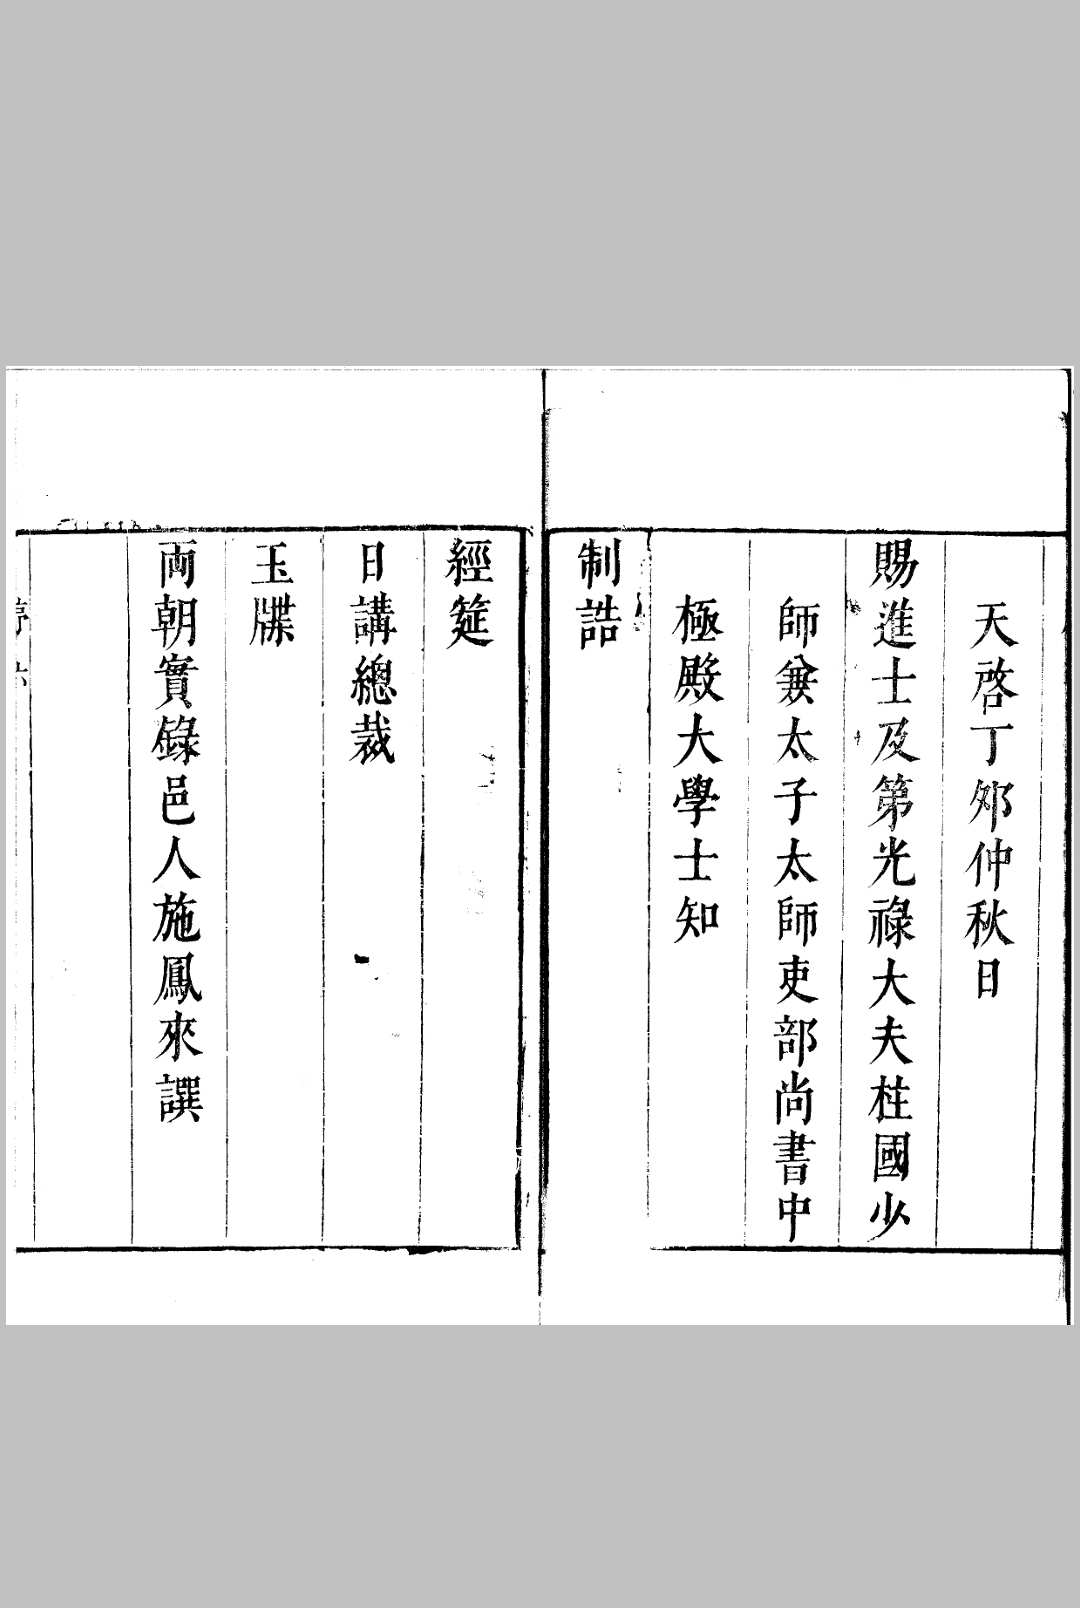 天啓丁夘仲秋日
賜進士及第光祿大夫柱國少
師兼太子太師吏部尚書中
極殿大學士知
制誥
經筵
日講總裁
玉牒
両朝實錄邑人施鳳來譔